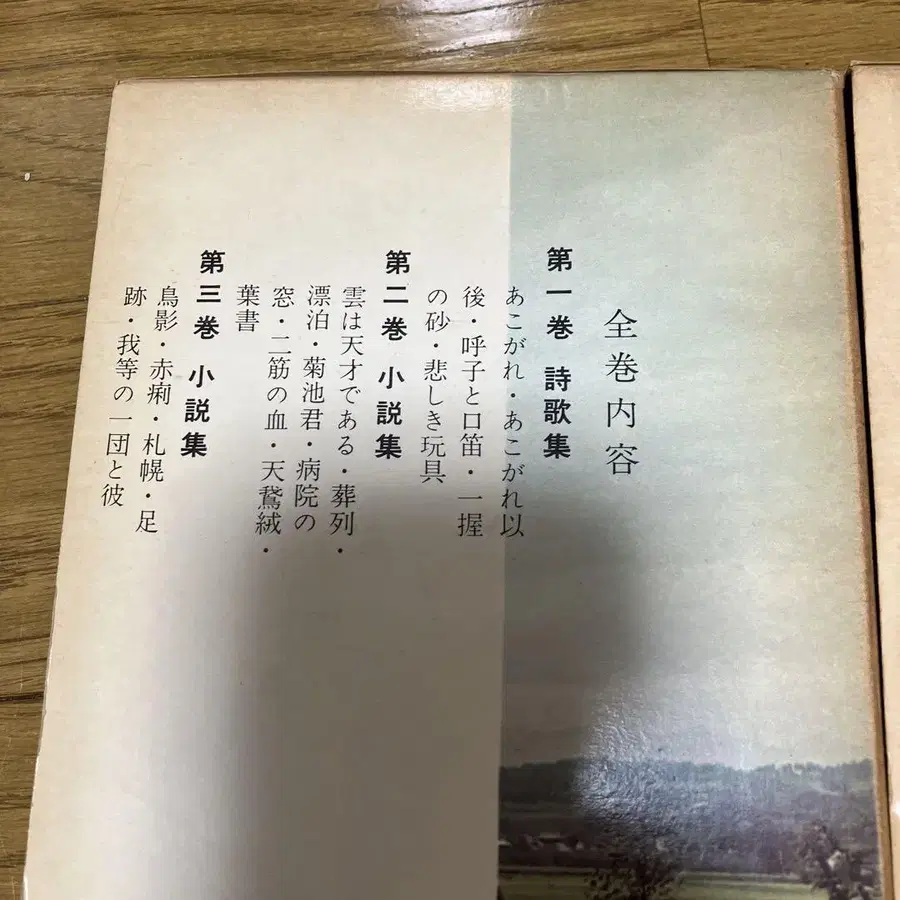 全巻内容
第一巻 詩歌集
あこがれ・あこがれ以
後・呼子と口笛・一握
の砂・悲しき玩具
第二巻 小説集
雲は天才である・葬列・
漂泊・菊池君・病院の
窓・二筋の血・天鵞絨・
葉書
第三巻 小説集
鳥影・赤痢・札幌・足
跡・我等の一団と彼